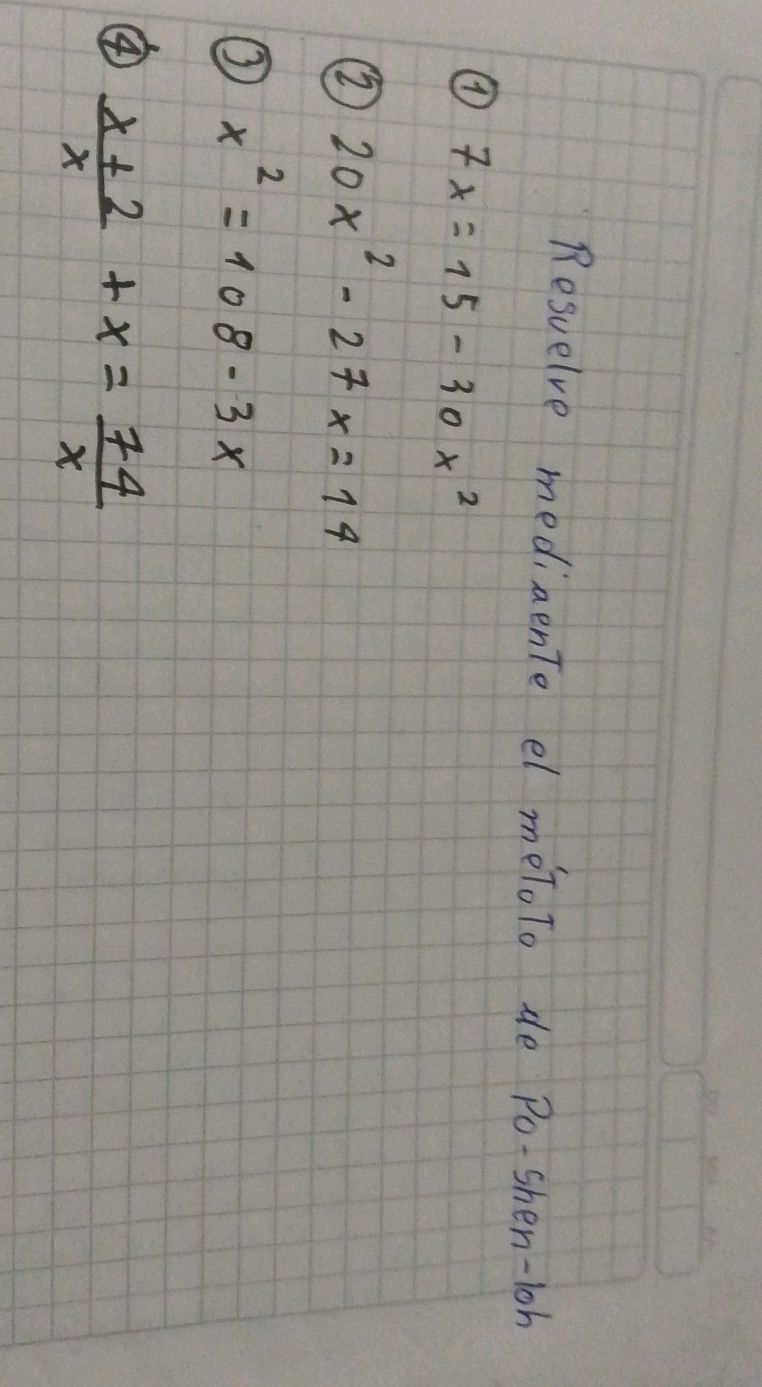 Resuelve mediaente el método de Po-Shen-loh
① 7x = 15 - 30x²
② 20x² - 27x = 14
③ x² = 108 - 3x
④ x + 2 / x + x = 74 / x